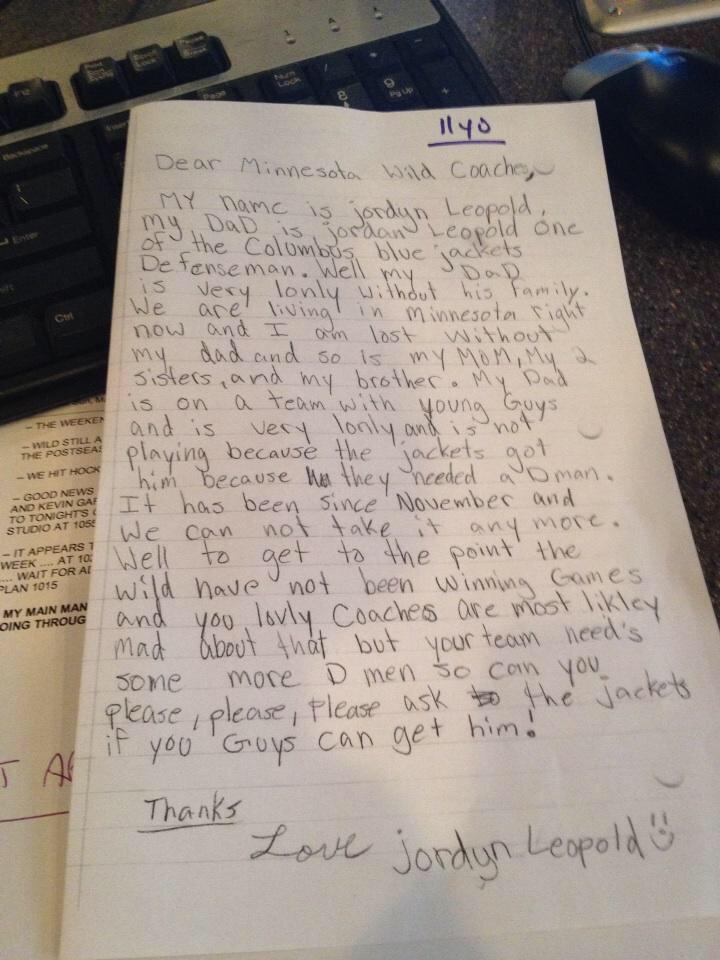 11 yo
Dear Minnesota Wild Coaches,
MY name is jordyn Leopold,
my DaD is jordan Leopold one
of the Columbus blue jackets
Defenseman. Well my DaD
is very lonly without his family.
We are living in minnesota right
now and I am lost without
my dad and so is my MOM, My 2
sisters, and my brother. My Dad
is on a team with young Guys
and is very lonly and is not
playing because the jackets got
him because they needed a Dman.
It has been since November and
We can not take it any more.
Well to get to the point the
wild have not been winning Games
and you lovly Coaches are most likley
mad about that but your team need's
some more D men so can you
please, please, Please ask the jackets
if you Guys can get him!
Thanks
Love jordyn Leopold
F12
Print
Scroll
Lock
Pause
Break
Backspace
Num
Lock
/
*
-
8
9
Pg Up
+
Page
Insert
\
Enter
Shift
Ctrl
– THE WEEKEN
– WILD STILL A
THE POSTSEAS
– WE HIT HOCK
– GOOD NEWS
AND KEVIN GAR
TO TONIGHT'S
STUDIO AT 105
– IT APPEARS T
WEEK .... AT 10
.... WAIT FOR
PLAN 1015
MY MAIN MAN
OING THROUG